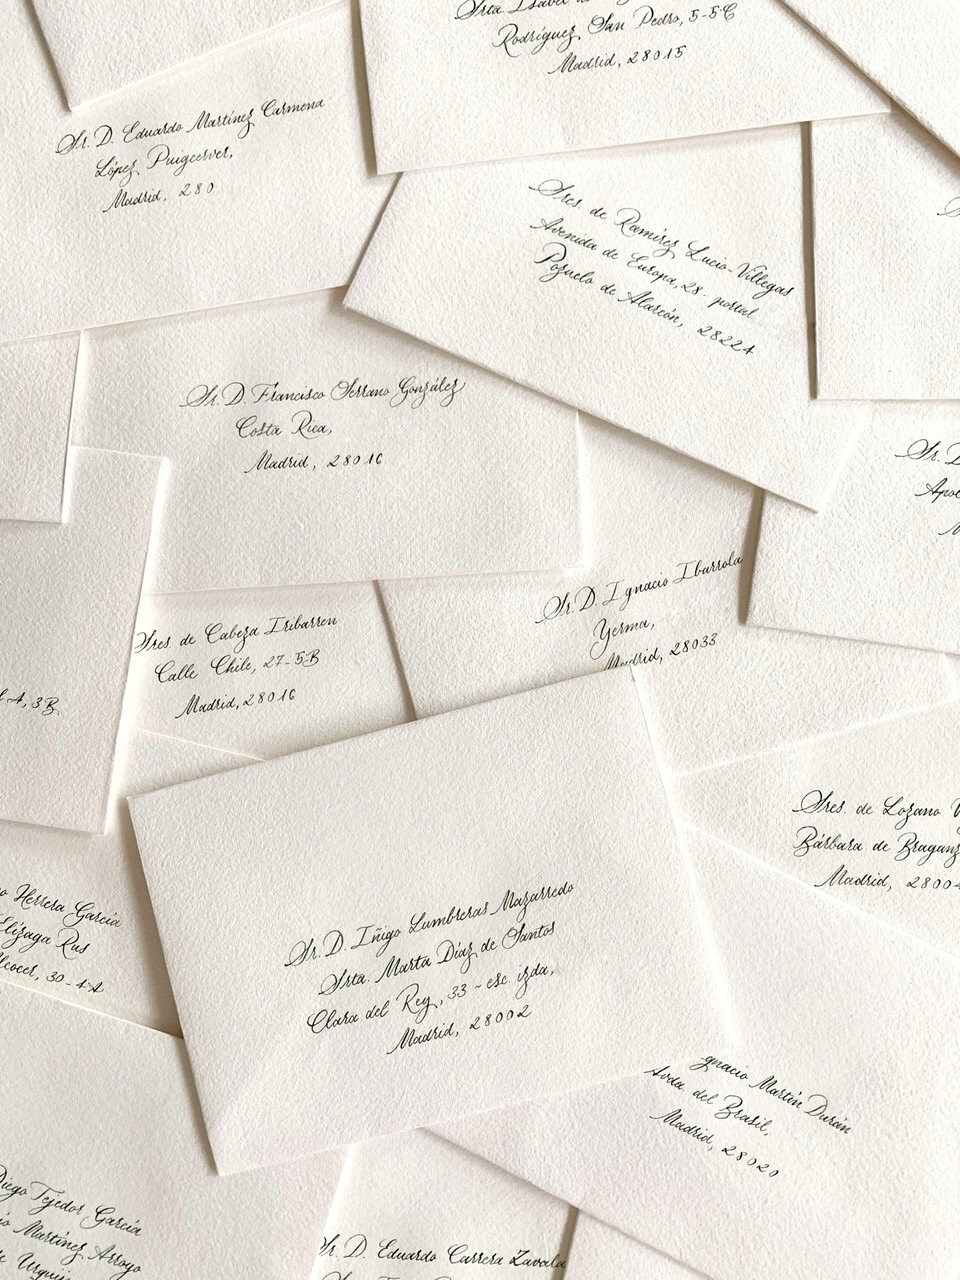 Srta. Isabel
Rodríguez San Pedro, 5-5C
Madrid, 28015
Sr. D. Eduardo Martínez Carmona
López Puigcerver,
Madrid, 280
Sres de Ramírez Lucio-Villegas
Avenida de Europa, 28 portal
Pozuelo de Alarcón, 28224
Sr. D Francisco Serrano González
Costa Rica,
Madrid, 28016
Sr. D.
Sr. D. Ignacio Ibarrola
Yerma,
Madrid, 28033
Sres de Cabeza Iribarren
Calle Chile, 27-5B
Madrid, 28016
A, 3B
Sres. de Lozano
Bárbara de
Madrid, 2800
Herrera García
Elizaga Rus
30-4A
Sr. D. Iñigo Lumbreras Mazarredo
Srta. Marta Díaz de Santos
Clara del Rey, 33 - esc. izda,
Madrid, 28002
gnacio Martín Durán
Avda. del Brasil,
Madrid, 28020
Diego Tejedor García
Martínez Arroyo
Sr. D. Eduardo Carrera Zavala